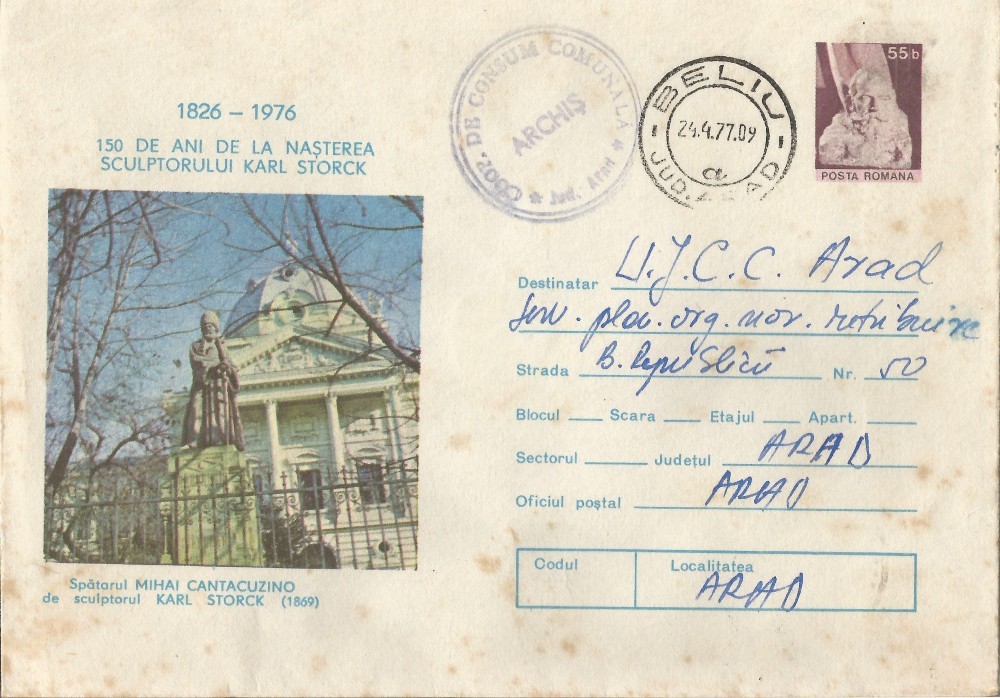 1826 – 1976
150 DE ANI DE LA NAȘTEREA
SCULPTORULUI KARL STORCK
Spătarul MIHAI CANTACUZINO
de sculptorul KARL STORCK (1869)
COOP. DE CONSUM COMUNALA
ARCHIȘ
Jud. Arad
BELIU
24.4.77.09
a
JUD. ARAD
55 b
POSTA ROMANA
Destinatar U.J.C.C. Arad
Serv. plan. org. nor. retribuire
Strada B. Republicii Nr. 50
Blocul Scara Etajul Apart.
Sectorul Județul ARAD
Oficiul poștal ARAD
Codul Localitatea
ARAD